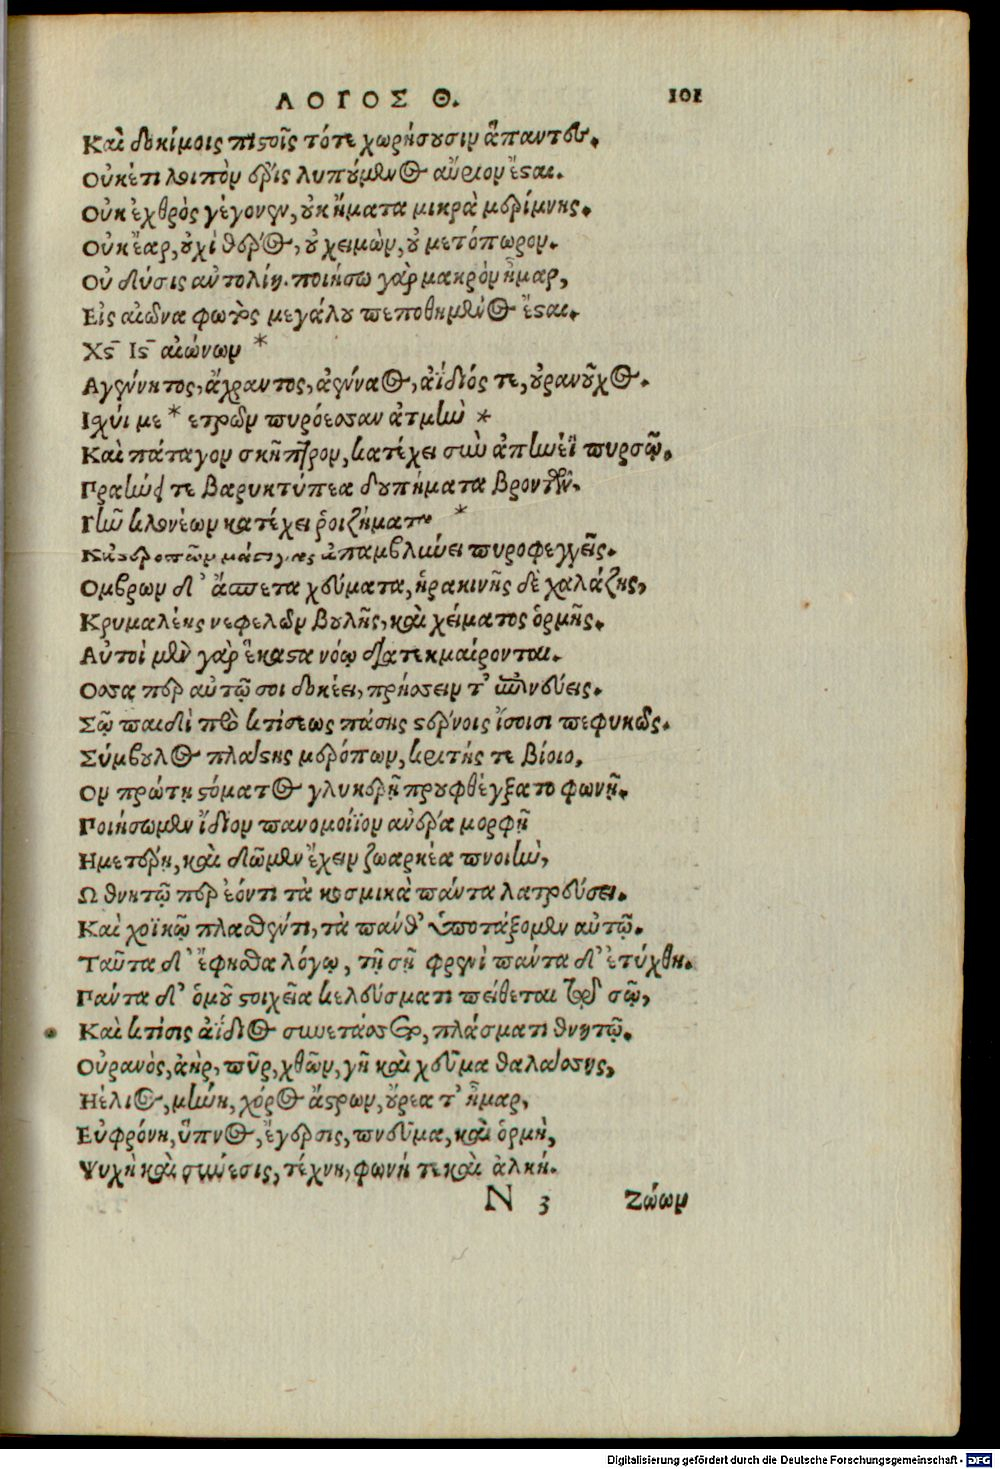 ΛΟΓΟΣ Θ. 101
Καὶ δοκίμοις πιστοῖς τότε χωρήσουσιν ἅπαντες.
Οὐκέτι λοιπὸν ἐρεῖς λυπούμενος αὔριον ἔσται.
Οὐκ ἐχθρὸς γέγονεν, οὐκ ἤματα μικρὰ μερίμνης.
Οὐκ ἔαρ, οὐχὶ θέρος, οὐ χειμὼν, οὐ μετόπωρον.
Οὐ δύσις ἀντολίη. ποιήσω γὰρ μακρὸν ἦμαρ,
Εἰς αἰῶνα φωτὸς μεγάλου πεποθημένος ἔσται.
Χς Ις αἰώνων *
Αγένητος, ἄχραντος, ἀένναος, ἀΐδιός τε, οὐρανοῦχος.
Ισχύι με * ετρῶν πυρόεσσαν ἀτμὴν *
Καὶ πάταγον σκῆπτρον, κατέχει σὺν ἀπηνέϊ πυρσῷ.
Πραΰνει τε βαρυκτύπεα δουπήματα βροντῶν.
Γῆν κλονέων κατέχει ῥοιζήματα *
μάστιγας ἀπαμβλύνει πυροφεγγεῖς.
Ομβρων δ' ἄσπετα χεύματα, ἠρακινῆς δὲ χαλάζης,
Κρυμαλέης νεφελῶν βουλῆς, καὶ χείματος ὁρμῆς.
Αὐτοὶ μὲν γὰρ ἕκαστα νόῳ διατεκμαίρονται.
Οσσα περ αὐτῷ σοι δοκέει, πρήσσειν τ' ἐπινεύεις.
Σῷ παιδὶ πρὸ κτίσεως πάσης στέρνοις ἴσοισι πεφυκώς.
Σύμβουλος πλάστης μερόπων, κριτής τε βίοιο.
Ον πρώτῃ στόματος γλυκερῇ προυφθέγξατο φωνῇ.
Ποιήσωμεν ἴδιον πανομοίϊον ἀνέρα μορφῇ
Ημετέρῃ, καὶ δῶμεν ἔχειν ζωαρκέα πνοιὴν,
Ω θνητῷ περ ἐόντι τὰ κοσμικὰ πάντα λατρεύσει.
Καὶ χοϊκῷ πλασθέντι, τὰ πάνθ' ὑποτάξομεν αὐτῷ.
Ταῦτα δ' ἔφησθα λόγῳ, τῇ σῇ φρενὶ πάντα δ' ἐτύχθη.
Πάντα δ' ὁμοῦ στοιχεῖα κελεύσματι πείθεται τῷδε σῷ,
Καὶ κτίσις ἀΐδιος συνετάσσετο, πλάσματι θνητῷ.
Οὐρανὸς, ἀὴρ, πῦρ, χθῶν, γῆ καὶ χεῦμα θαλάσσης,
Ηέλιος, μήνη, χόρος ἄστρων, οὔρεα τ' ἦμαρ,
Εὐφρόνη, ὕπνος, ἔγερσις, πνεῦμα, καὶ ὁρμὴ,
Ψυχὴ καὶ σύνεσις, τέχνη, φωνή τε καὶ ἀλκή.
N 3 Ζώων
Digitalisierung gefördert durch die Deutsche Forschungsgemeinschaft - DFG